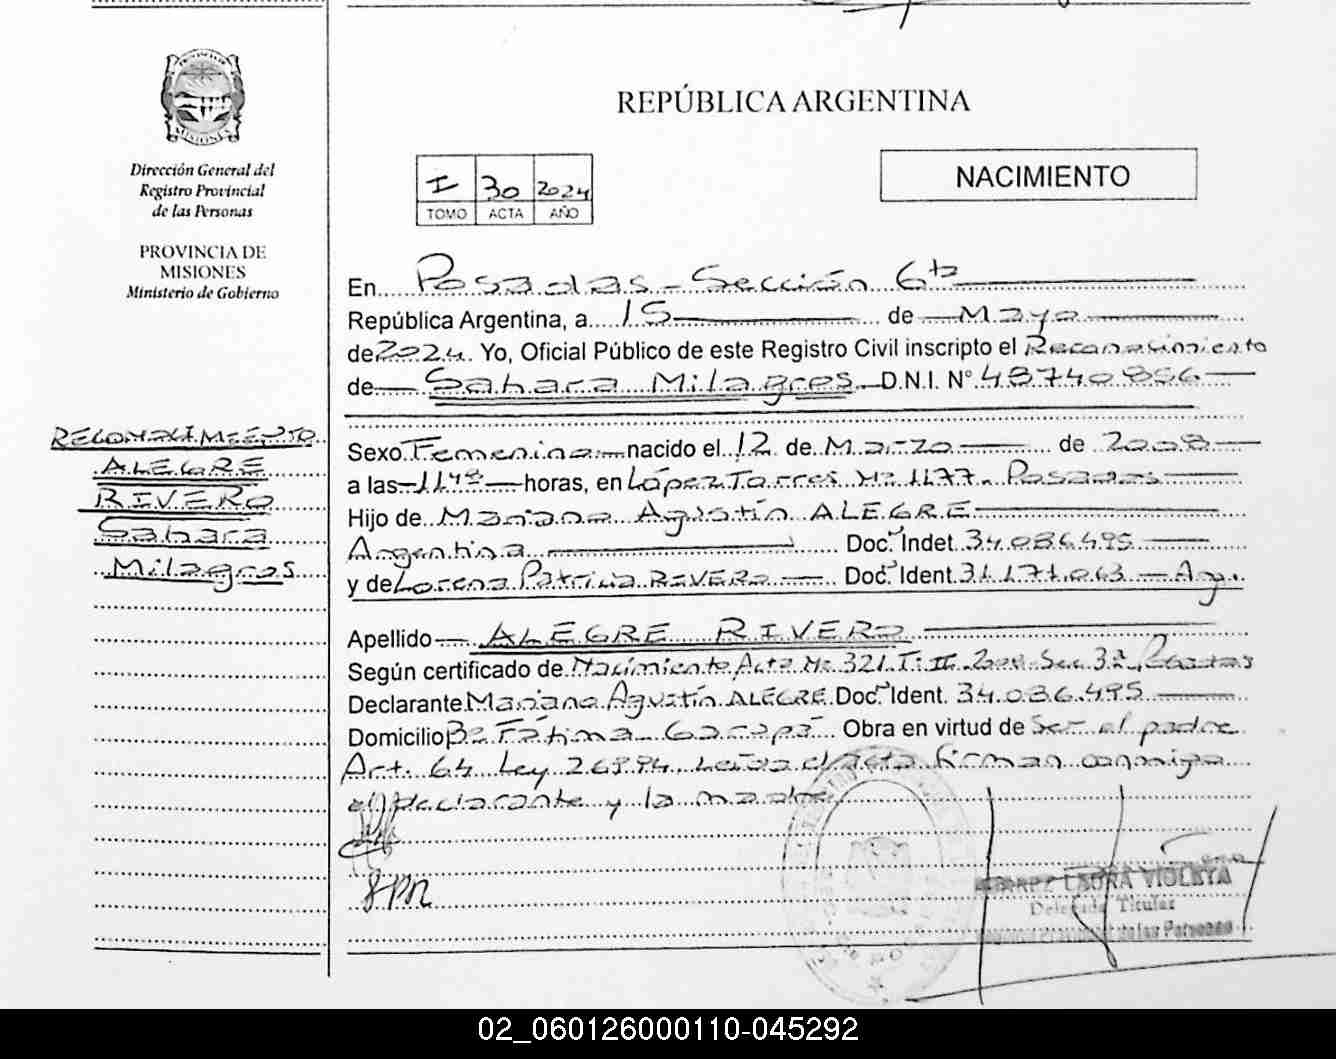 REPÚBLICA ARGENTINA
PROVINCIA DE
MISIONES
Dirección General del
Registro Provincial
de las Personas
PROVINCIA DE
MISIONES
Ministerio de Gobierno
I 30 2024
TOMO ACTA AÑO
NACIMIENTO
En Posadas - Sección 6ta
República Argentina, a 15 de Mayo
de 2024. Yo, Oficial Público de este Registro Civil inscripto el Reconocimiento
de Sahara Milagros D.N.I. N° 48740856
Sexo Femenino nacido el 12 de Marzo de 2008
a las 11 horas, en López Torres Nº 1177. Posadas
Hijo de Mariano Agustín ALEGRE
Argentina Doc. Indet 34.036.495
y de Lorena Patricia RIVERO Doc. Ident. 31.171.063 Arg.
Apellido ALEGRE RIVERO
Según certificado de Nacimiento Acta Nº 321 T: II Sec. 3ª, Posadas
Declarante Mariano Agustín ALEGRE Doc. Ident. 34.036.495
Domicilio Bº Fátima Garupá Obra en virtud de Ser el padre
Art. 64 Ley 26994. Leída el acta firman conmigo
el declarante y la madre
RECONOCIMIENTO
ALEGRE
RIVERO
Sahara
Milagros
LAURA VIOLETA
Delegada Titular
de las Personas
02_060126000110-045292